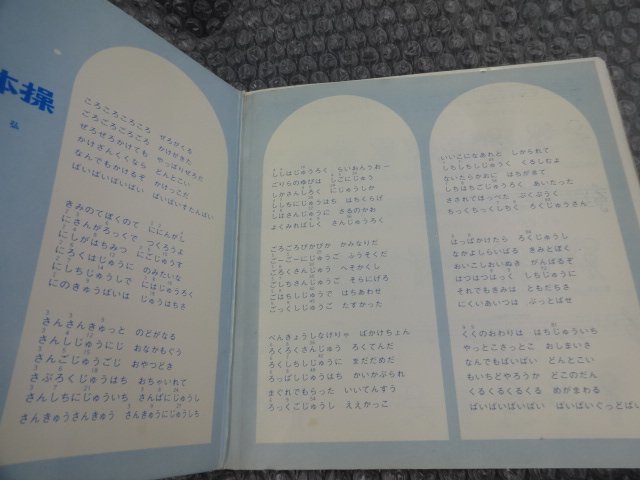 本操
弘
ころころころころ　ぜろがくる
ごろごろごろごろ　かけがきた
ぜろぜろかけても　やっぱりぜろだ
かけざんくくなら　どんとこい
なんでもかけるぞ　かけっこだ
ばいばいばいばい　ばいばいすたんばい
きみのてぼくのて　ににんがし
にさんがろっくで　つくろうよ
にしがはちみつ　にごじゅうす
にろくはじゅうに　のみたいな
にしちじゅうしで　にはじゅうろく
にのきゅうばいは　じゅうはちさ
さんさんきゅっと　のどがなる
さんしじゅうにじ　おなかもぐう
さんごじゅうごじ　おやつどき
さぶろくじゅうはち　おちゃいれて
さんしちにじゅういち　さんぱにじゅうし
さんきゅうさんきゅう　さんきゅうにじゅうしち
ししはじゅうろく　らいおんうおー
ごりらのゆびは　しごにじゅう
しかさんしろく　にじゅうしか
ししちにじゅうはち　はちくらげ
しはさんじゅうに　さるのかお
よくみればしく　さんじゅうろく
ごろごろぴかぴか　かみなりだ
ごーごーにじゅうご　ふうそくだ
ごろくさんじゅう　へそかくし
ごしちさんじゅうご　そらにげろ
ごはちしじゅうで　はちあわせ
ごっくしじゅうご　たすかった
べんきょうしなけりゃ　ばかけちょん
ろくろくさんじゅう　ろくてんだ
ろくしちしじゅうに　まだだめだ
ろっぱしじゅうはち　かいかぶられ
まぐれでもらった　いいてんすう
ろっくごじゅうし　ええかっこ
いいこになあれと　しかられて
しちしちしじゅうく　くるしむよ
ないたらかおに　はちがまて
しちはちごじゅうろく　あいたった
さされてほっぺた　ぷくぷうく
ちっくちっくしちく　ろくじゅうさん
はっぱかけたら　ろくじゅうし
なかよしらいばる　きみとぼく
おいこしおいぬき　がんばるぞ
はつはつはっく　しちじゅうに
それでもきみは　ともだちさ
にくいあいつは　ぶっとばせ
くくのおわりは　はちじゅういち
やっとこさっとこ　おしまいさ
なんでもばいばい　どんとこい
もいちどやろうか　どこのだん
くるくるくるくる　めがまわる
ばいばいばいばい　ばいばいぐっどばい